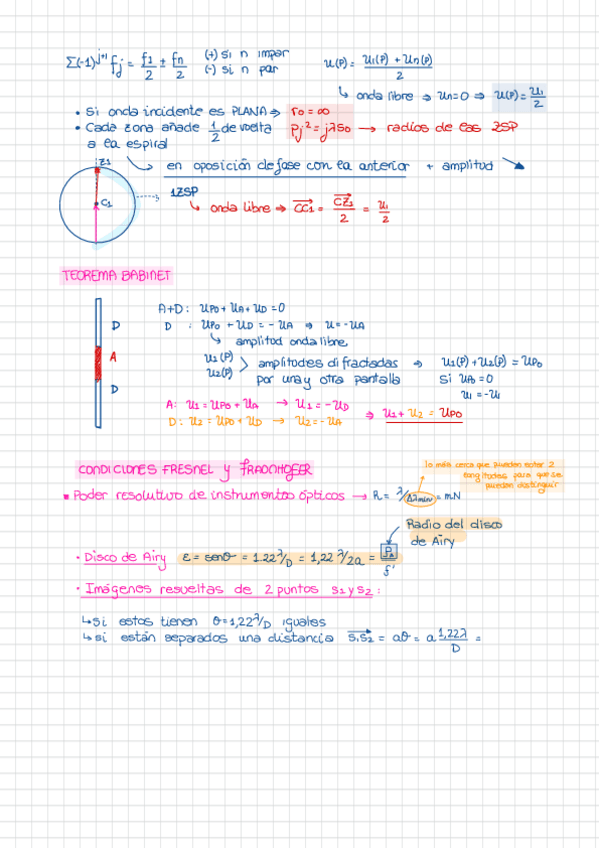 Σ(-1)^{j+1} f_j = f_1/2 ± f_n/2 (+) si n impar
(-) si n par
u(P) = (u_1(P) + u_n(P))/2
↳ onda libre → u_n=0 ⇒ u(P) = u_1/2
• Si onda incidente es PLANA ⇒ r_0 = ∞
• Cada zona añade 1/2 de vuelta a la espiral
ρ_j² = jλs_0 → radios de las ZSP
↳ en oposición de fase con la anterior + amplitud ↘
Z1
C1
1ZSP
↳ onda libre ⇒ CC_1 = CZ_1/2 = u_1/2
TEOREMA BABINET
D
A
D
A+D: u_PO + u_A + u_D = 0
D : u_PO + u_D = -u_A ⇒ u = -u_A
↳ amplitud onda libre
u_1(P)
u_2(P) > amplitudes difractadas por una y otra pantalla ⇒ u_1(P) + u_2(P) = u_PO
si u_PO = 0
u_1 = -u_2
A: u_1 = u_PO + u_A → u_1 = -u_D
D: u_2 = u_PO + u_D → u_2 = -u_A
⇒ u_1 + u_2 = u_PO
CONDICIONES FRESNEL y FRAONHOFER
lo más cerca que pueden estar 2
longitudes para que se
puedan distinguir
▪ Poder resolutivo de instrumentos ópticos → R = λ/Δλmin = mN
Radio del disco
de Airy
• Disco de Airy ε = senθ = 1.22 λ/D = 1,22 λ/2a = ρ_A/f'
• Imágenes resueltas de 2 puntos s1 y s2:
↳ si estos tienen θ=1,22 λ/D iguales
↳ si están separados una distancia s_1s_2 = aθ = a 1,22λ/D =